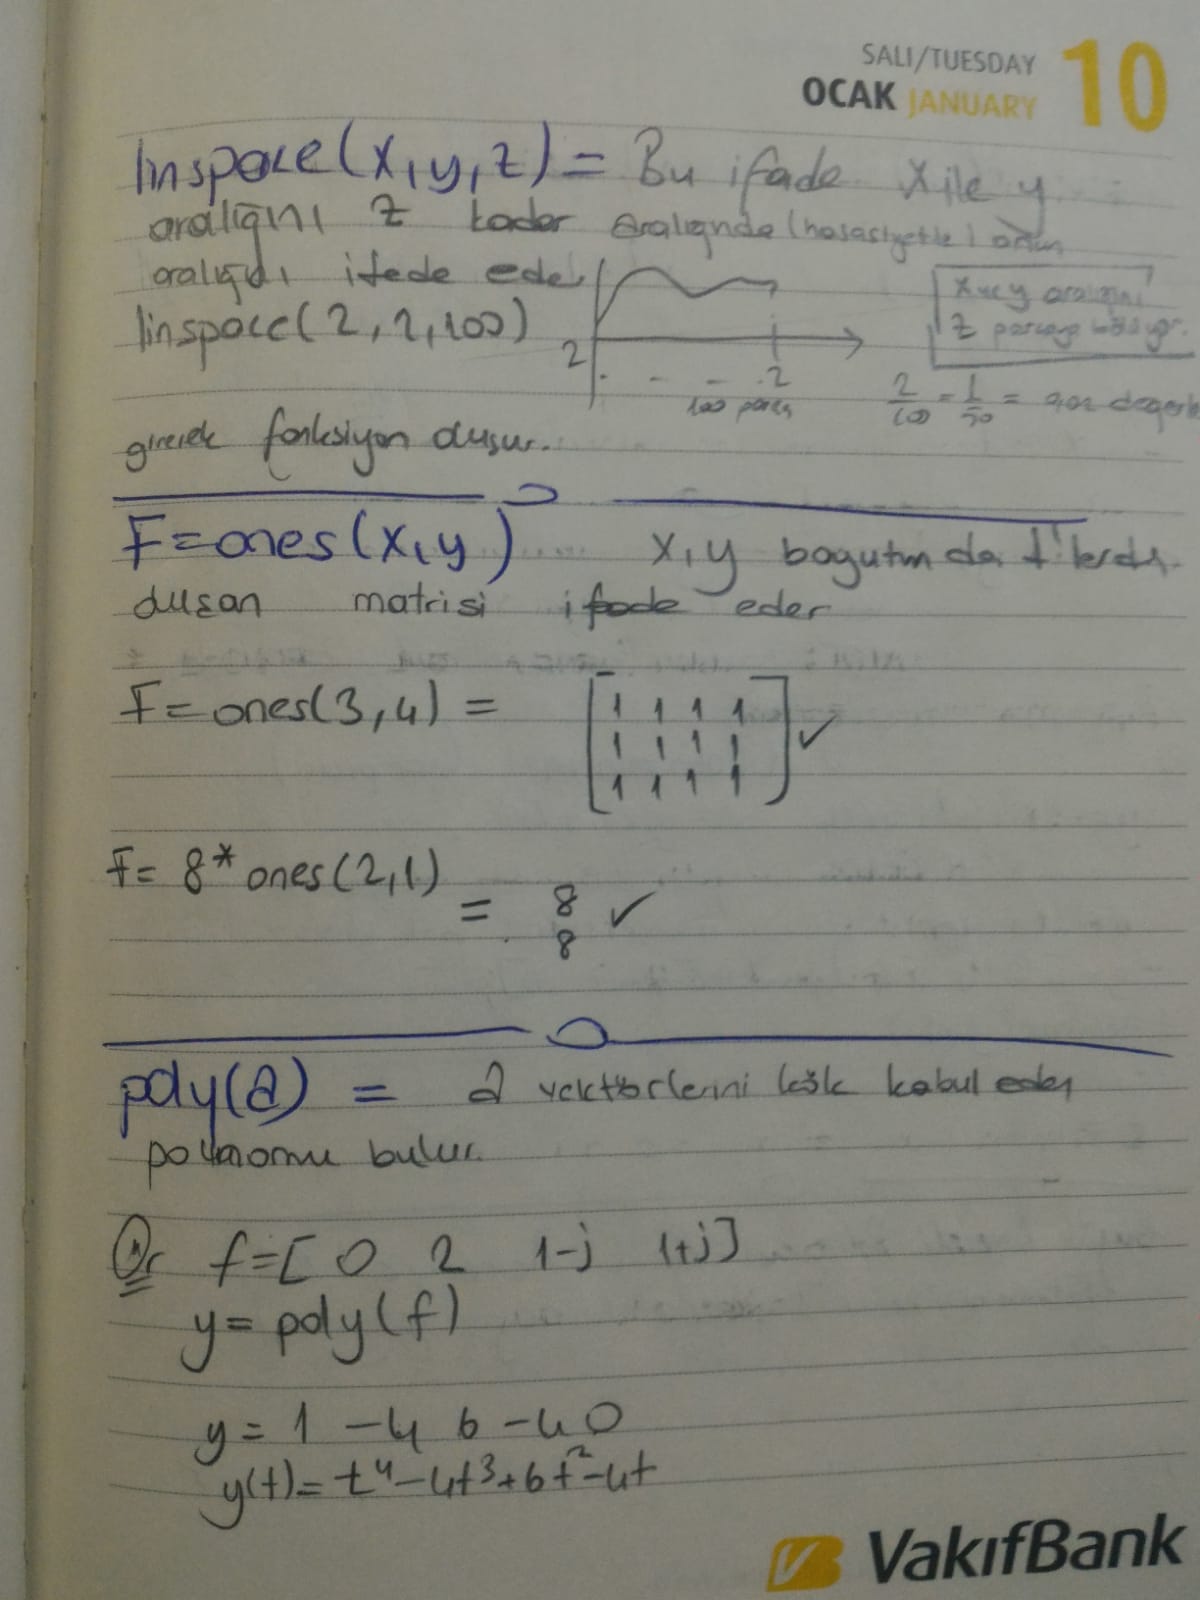 SALI/TUESDAY
OCAK JANUARY 10
linspace(x,y,z) = Bu ifade x ile y
aralığını z kadar aralığında (hassasiyetle) artan
aralığı ifade eder
linspace(2,2,100)
2
2
100 parça
x ve y aralığını
z parçaya bölüyor.
2/100 = 1/50 = 0,02 değerle
girerek fonksiyon oluşur.
F=ones(x,y) x,y boyutunda 1'lerden
oluşan matrisi ifade eder
F=ones(3,4) =
1 1 1 1
1 1 1 1
1 1 1 1
F= 8*ones(2,1)
= 8
8
poly(a) = a vektörlerini kök kabul eden
polinomu bulur.
Ör f=[ 0 2 1-j 1+j]
y=poly(f)
y= 1 -4 6 -4 0
y(t)= t⁴-4t³+6t²-4t
VakıfBank